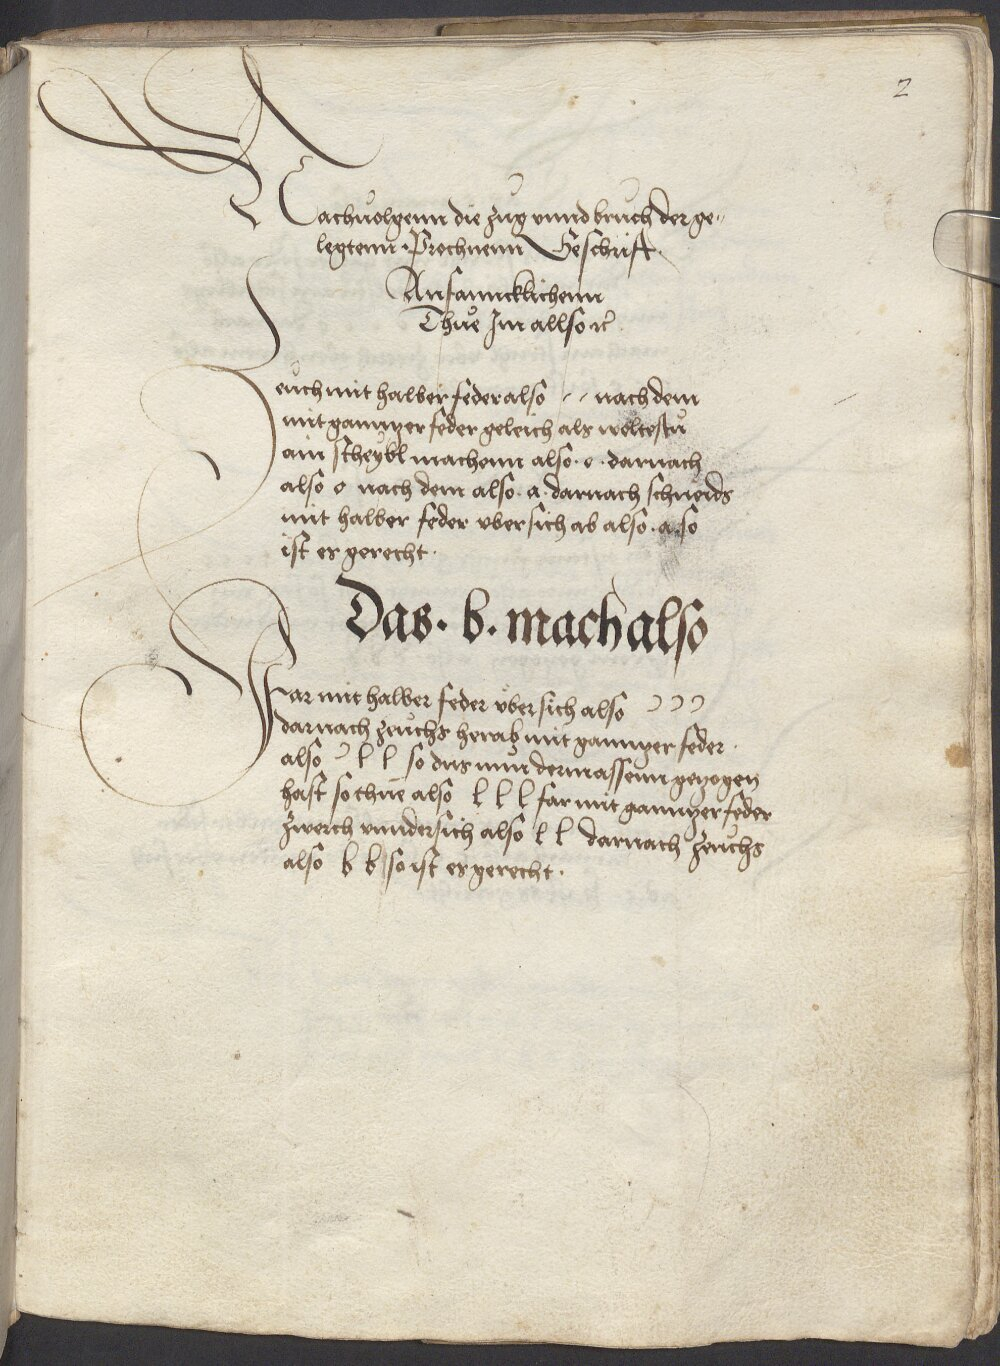 2
Nachuolgenn die zug vnnd bruch der ge„
legtenn Prochnenn Geschrift.
Anfanncklichenn
Thue Im allso
Zeuch mit halber feder also nach dem
mit gannzer feder geleich als weltestu
ain scheybl machenn also. o. darnach
also o nach dem also. a. darnach schneids
mit halber feder vbersich ab also. a. so
ist er gerecht.
Das. b. mach also
Far mit halber feder vbersich also
darnach zeuchs herab mit gannzer feder.
also l l so dus nun dermassenn gezogen
hast so thue also l l l far mit gannzer feder
zwerch vnndersich also l l darnach zeuchs
also b b so ist er gerecht.